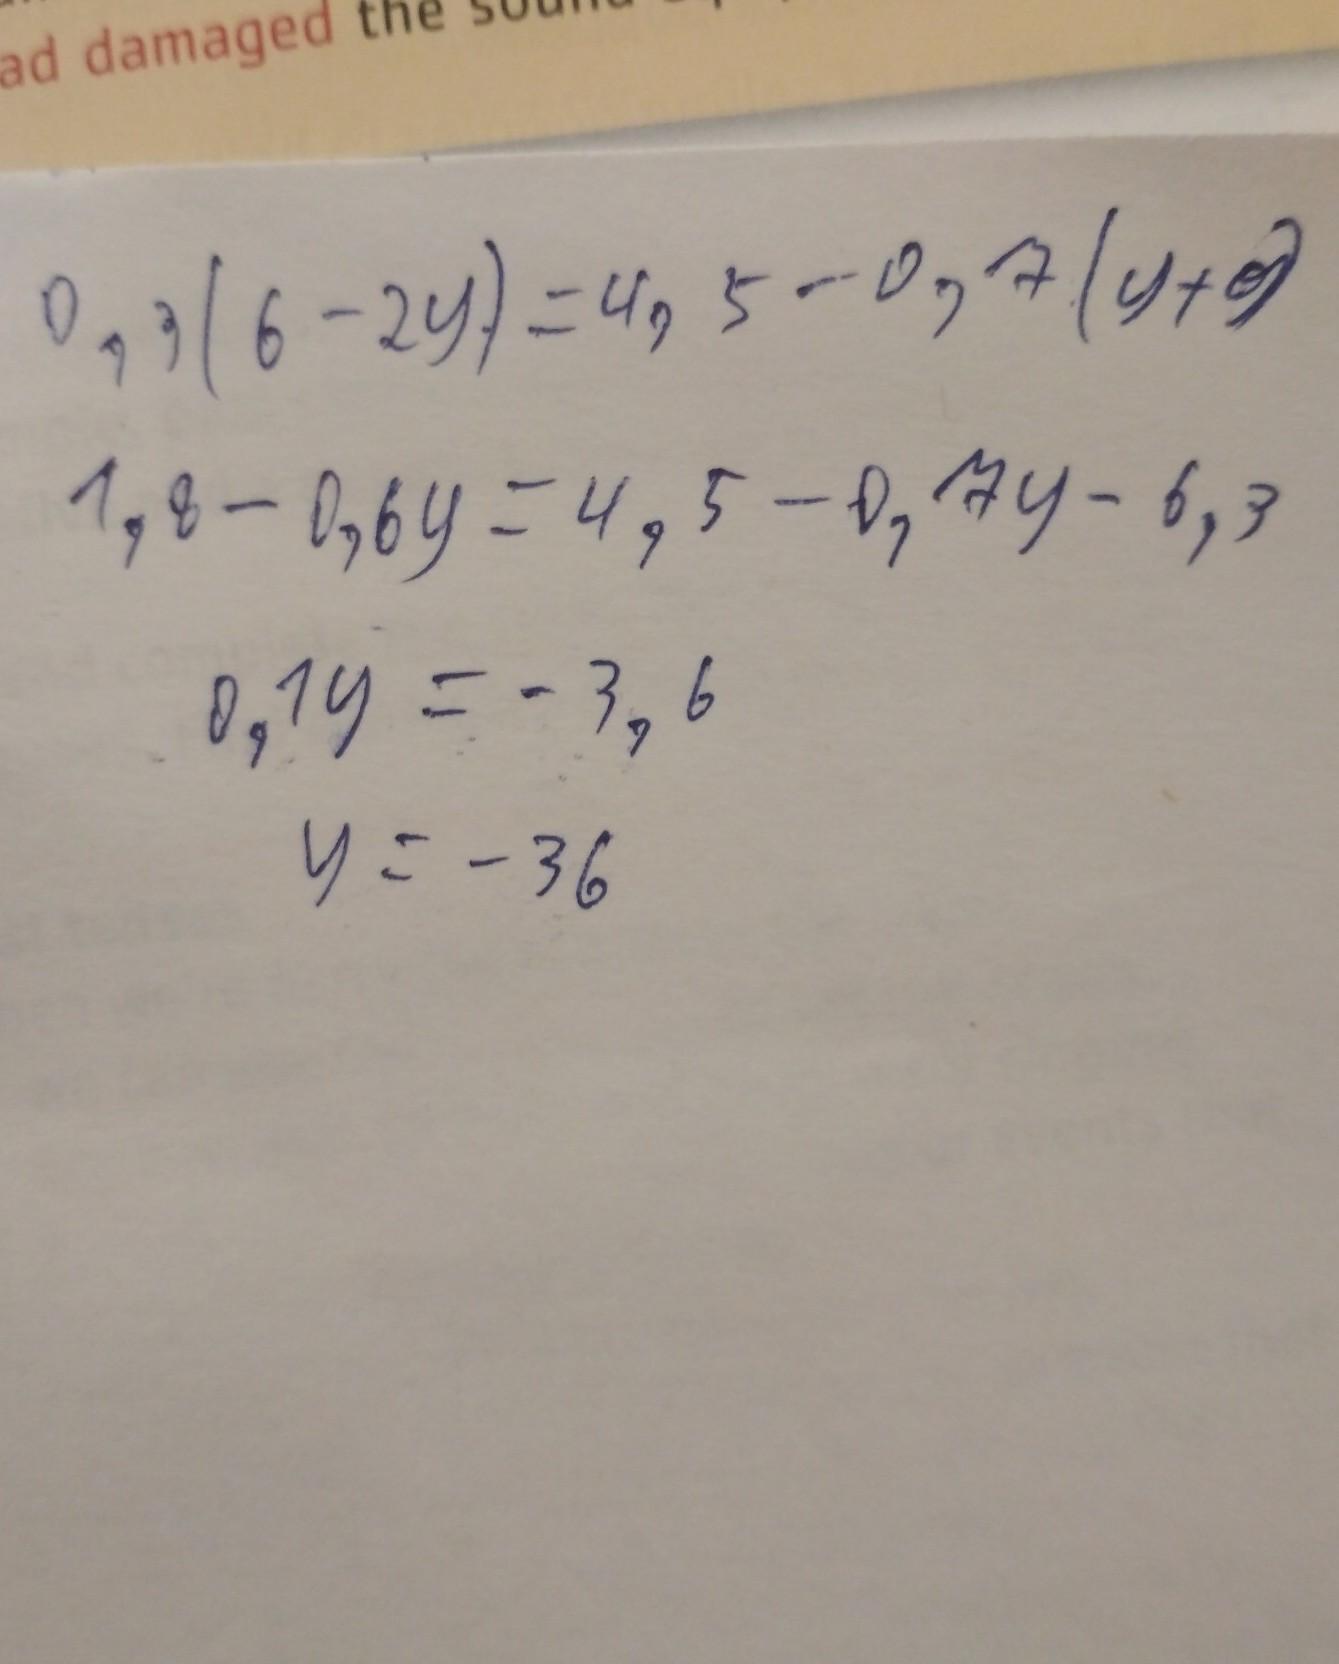 ad damaged the sound
0,3(6-2y)=4,5-0,7(y+9)
1,8-0,6y=4,5-0,7y-6,3
0,1y=-3,6
y=-36